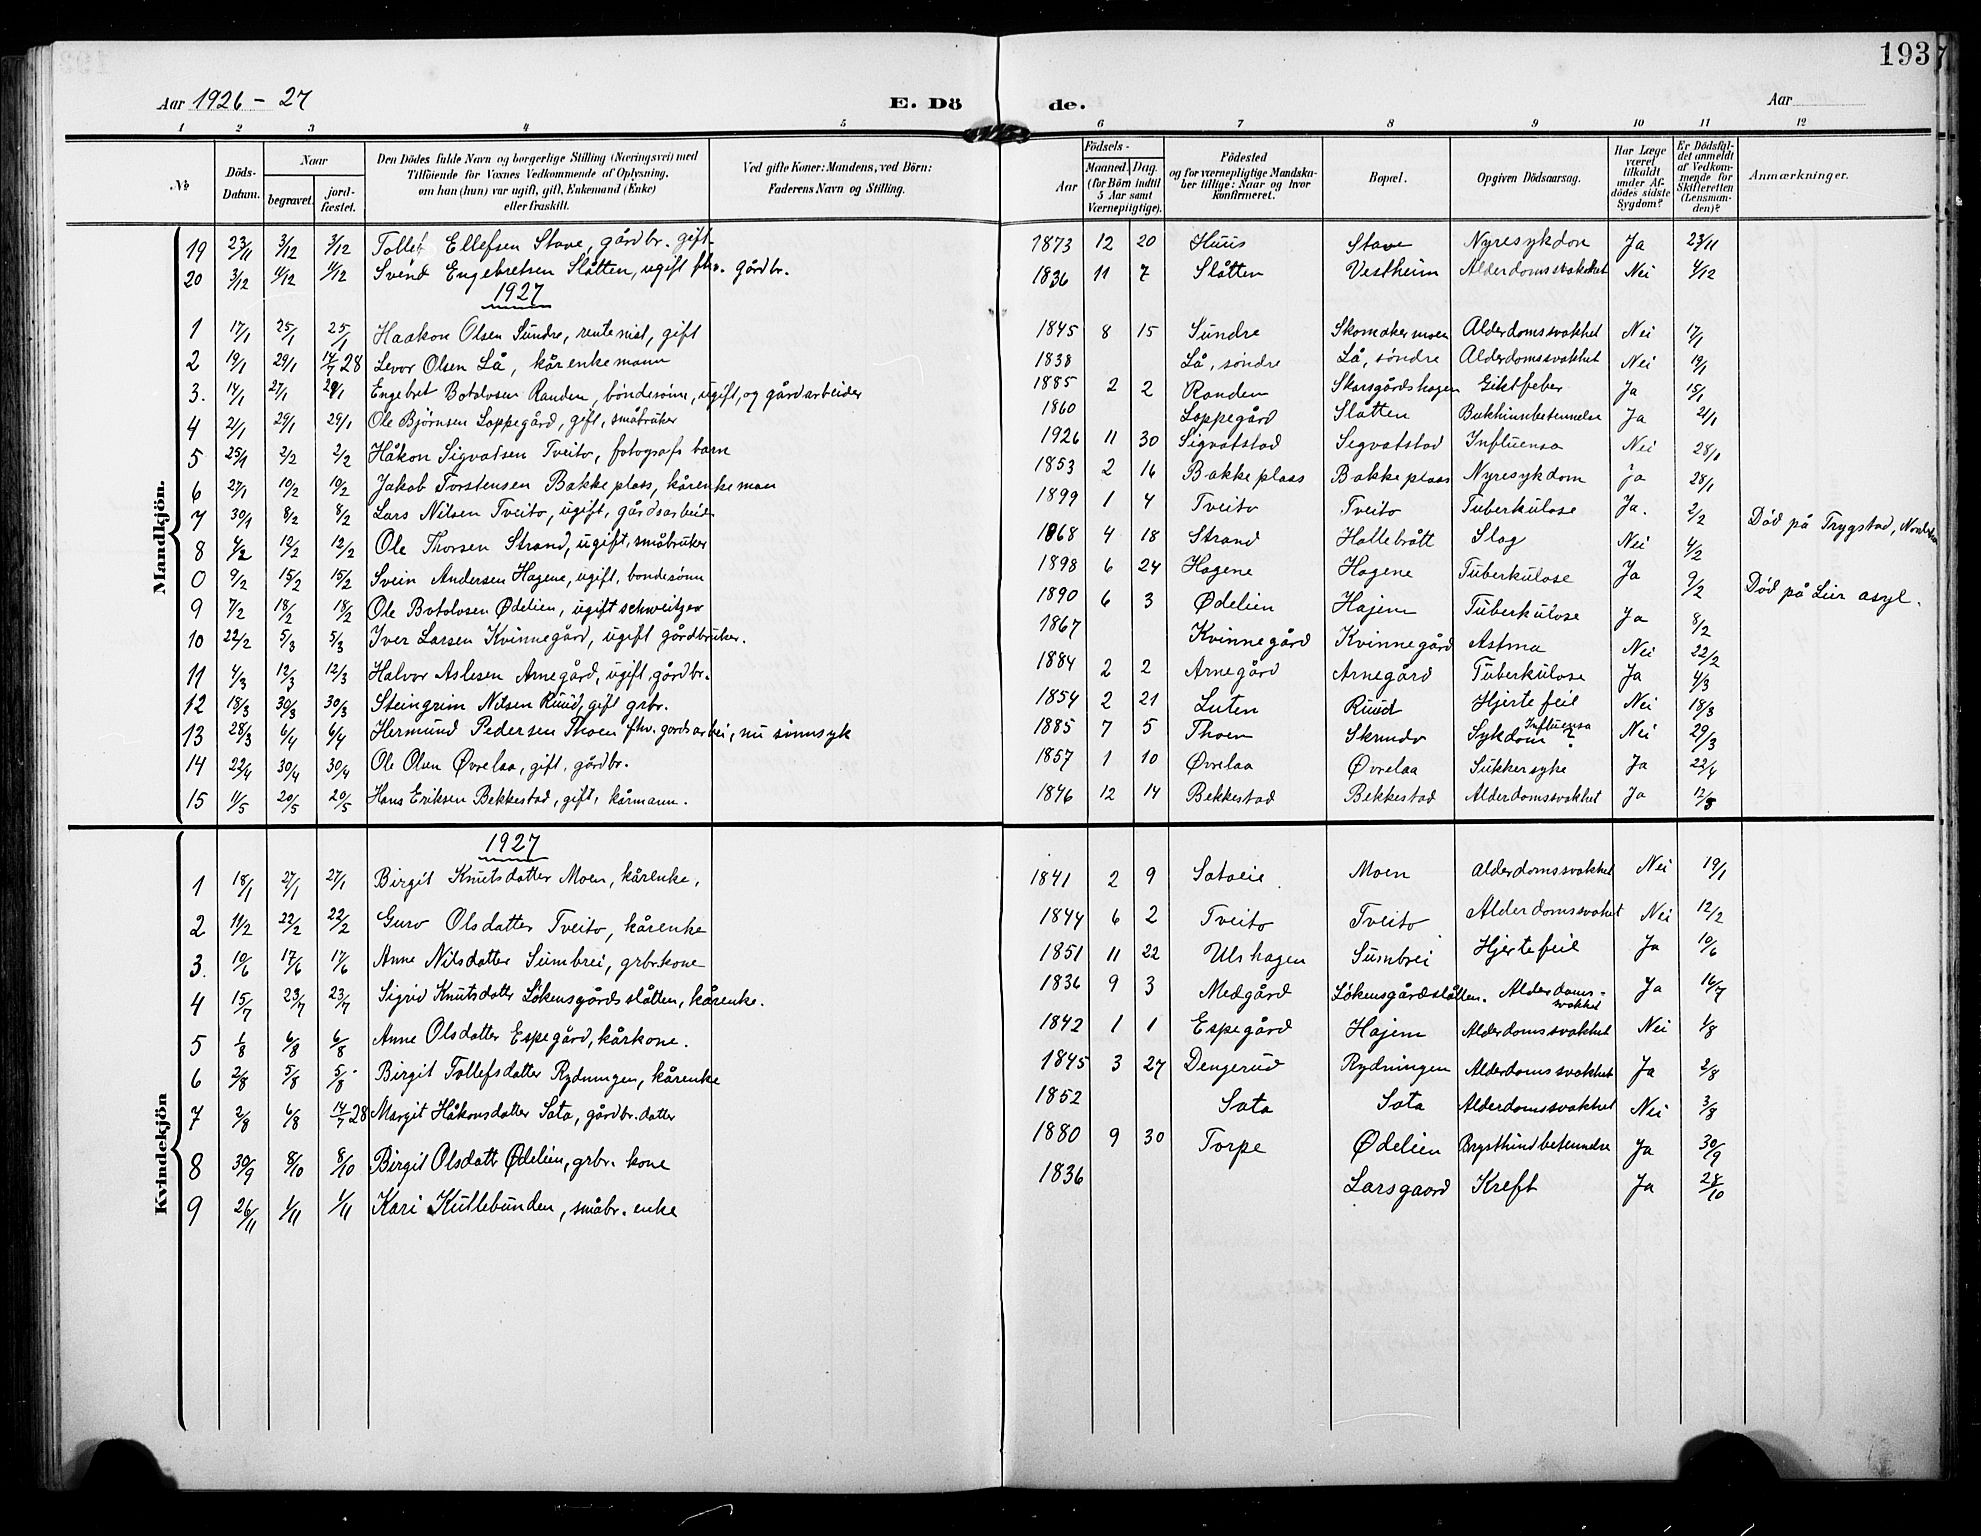 193
Aar 1926 - 27 E. Dö de. Aar
1 2 3 4 5 6 7 8 9 10 11 12
№ Döds-Datum. Naar begravet. jord-fæstet. Den Dödes fulde Navn og borgerlige Stilling (Næringsvei) med Tilföiende for Voxnes Vedkommende af Oplysning, om han (hun) var ugift, gift, Enkemand (Enke) eller fraskilt. Ved gifte Koner: Mandens, ved Börn: Faderens Navn og Stilling. Födsels- Aar Maaned. Dag. (for Börn indtil 5 Aar samt Værnepligtige). Födested og for værnepligtige Mandskaber tillige: Naar og hvor konfirmeret. Bopæl. Opgiven Dödsaarsag. Har Læge været tilkaldt under Afdödes sidste Sygdom? Er Dödsfaldet anmeldt af Vedkommende for Skifteretten (Lensmanden)? Anmærkninger.
Mandkjön.
19 23/11 3/12 3/12 Tollef Ellefsen Stave, gårdbr. gift 1873 12 20 Huus Stave Nyresykdon Ja 23/11
20 3/12 4/12 4/12 Svend Engebretsen Slåtten, ugift fhv. gårdbr. 1836 11 7 Slåtten Vestheim Alderdomssvakhet Nei 4/12
1927
1 17/1 25/1 25/1 Haakon Olsen Sundre, rentenist, gift 1845 8 15 Sundre Skomakermoen Alderdomssvakhet Nei 17/1
2 19/1 29/1 14/7 28 Levor Olsen Lå, kårenkemann 1838 Lå, søndre Lå, søndre Alderdomssvakhet Nei 19/1
3. 14/1 27/1 Engebret Botolvsen Randen, bondesønn, ugift, og gårdarbeider 1885 2 2 Randen Skarsgårdshagen Giktfeber Ja 15/1
4 21/1 29/1 29/1 Ole Bjørnsen Loppegård, gift, småbruker 1860 Loppegård Slåtten Bukhinnbetennelse Ja 21/1
5 25/1 2/2 2/2 Håkon Sigvatsen Tveito, fotografs barn 1926 11 30 Sigvatstad Sigvatstad Influensa Nei 28/1
6 27/1 10/2 10/2 Jakob Torstensen Bakkeplass, kårenkeman 1853 2 16 Bakkeplass Bakkeplass Nyresykdom Ja 28/1
7 30/1 8/2 8/2 Lars Nilsen Tveito, ugift, gårdsarbeid. 1899 1 4 Tveito Tveito Tuberkulose Ja. 2/2 Død på Trygstad,
8 4/2 12/2 12/2 Ole Thorsen Strand, ugift, småbruker 1868 4 18 Strand Hallebrått Slag Nei 4/2
0 9/2 15/2 15/2 Svein Andersen Hagene, ugift, bondesønn 1898 6 24 Hagene Hagene Tuberkulose Ja 9/2 Død på Lier asyl.
9 7/2 18/2 18/2 Ole Botolvsen Ødelien, ugift schweitzer 1890 6 3 Ødelien Hajem Tuberkulose Ja 8/2
10 22/2 5/3 5/3 Iver Larsen Kvinnegård, ugift gårdbruker. 1867 Kvinnegård Kvinnegård Astma Nei 22/2
11 4/3 12/3 12/3 Halvor Aslesen Arnegård, ugift, gårdbr. 1884 2 2 Arnegård Arnegård Tuberkulose Ja 4/3
12 18/3 30/3 30/3 Steingrim Nilsen Ruud, gift grbr. 1854 2 21 Luten Ruud Hjertefeil Nei 18/3
13 28/3 6/4 6/4 Hermund Pedersen Thoen fhv. gårdsarbei, nu sinnsyk 1885 7 5 Thoen Skrindo Sykdom Influensa ? Nei 29/3
14 22/4 30/4 30/4 Ole Olsen Øvrelaa, gift, gårdbr. 1857 1 10 Øvrelaa Øvrelaa Sukkersyke Ja 22/4
15 11/5 20/5 20/5 Hans Eriksen Bekkestad, gift, kårmann. 1846 12 14 Bekkestad Bekkestad Alderdomssvakhet Ja 12/5
Kvindekjön
1927
1 18/1 27/1 27/1 Birgit Knutsdatter Moen, kårenke, 1841 2 9 Sataeie Moen Alderdomssvakhet Nei 19/1
2 11/2 22/2 22/2 Guro Olsdatter Tveito, kårenke 1844 6 2 Tveito Tveito Alderdomssvakhet Nei 12/2
3. 10/6 17/6 17/6 Anne Nilsdatter Sumbrei, grbr.kone 1851 11 22 Ulshagen Sumbrei Hjertefeil Ja 10/6
4 15/7 23/7 23/7 Sigrid Knutsdatter Løkensgårdslåtten, kårenke. 1836 9 3 Medgård Løkensgårdslåtten. Alderdoms-svakhet Ja 16/7
5 1/8 6/8 6/8 Anne Olsdatter Espegård, kårkone. 1842 1 1 Espegård Hajem Alderdomssvakhet Nei 1/8
6 2/8 5/8 5/8 Birgit Tollefsdatter Rydningen, kårenke 1845 3 27 Dengerud Rydningen Alderdomssvakhet Ja 2/8
7 2/8 6/8 14/7 28 Margit Håkonsdatter Sata, gårdbr. datter 1852 Sata Sata Alderdomssvakhet Nei 3/8
8 30/9 8/10 8/10 Birgit Olsdatt Ødelien, grbr. kone 1880 9 30 Torpe Ødelien Brysthindbetennelse Ja 30/9
9 26/11 1/11 1/11 Kari Kullebunden, småbr. enke 1836 Larsgaard Kreft Ja 28/10